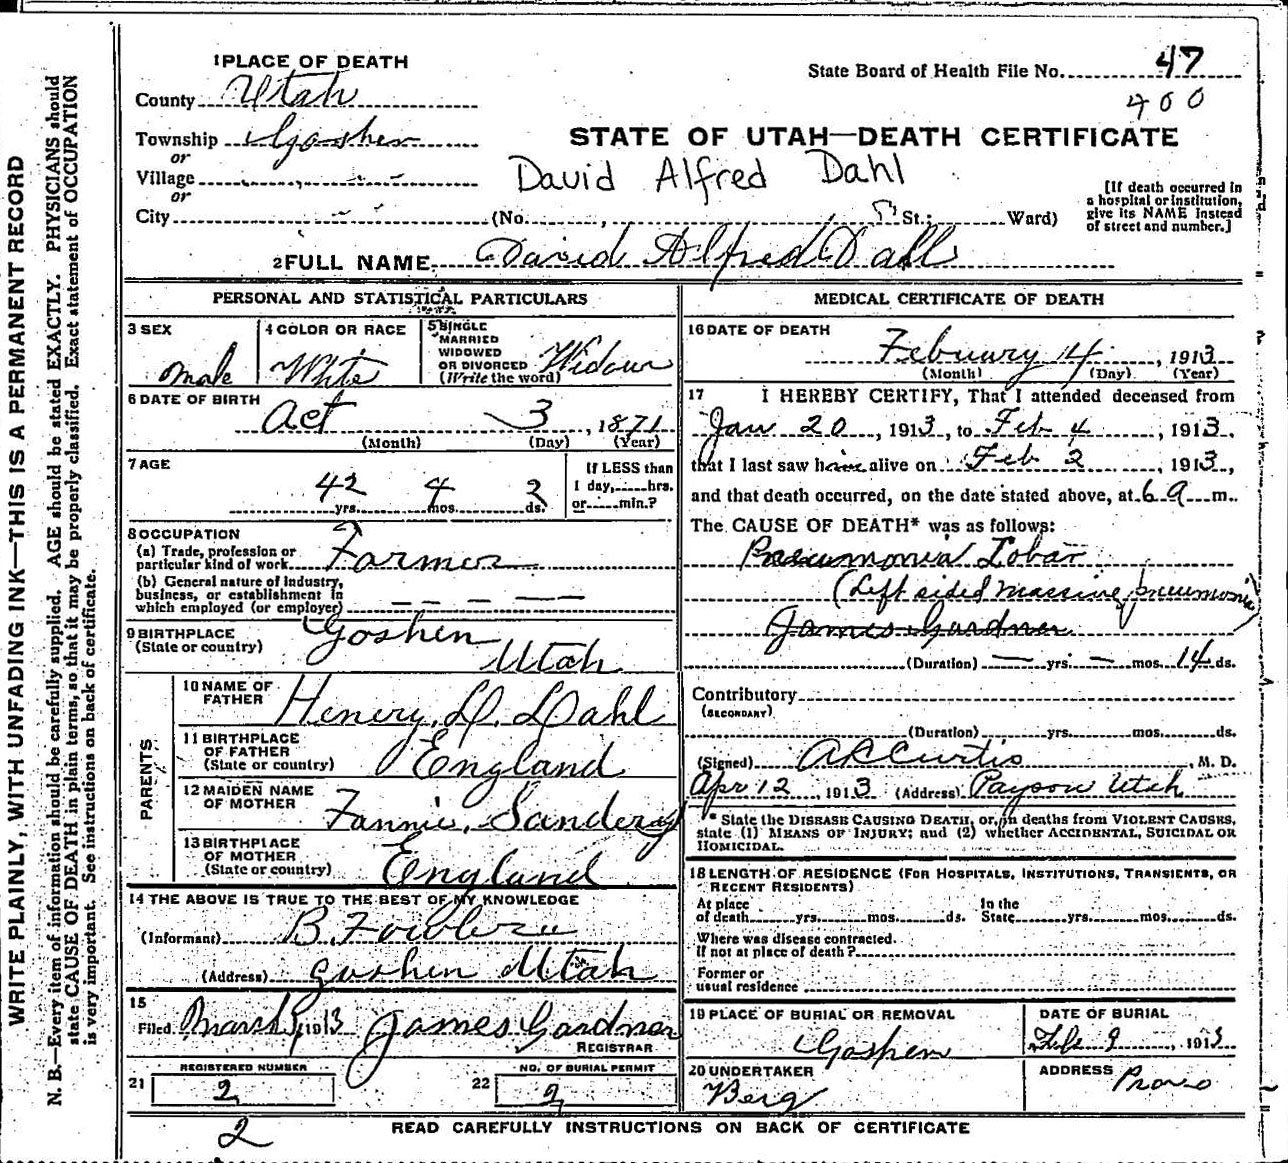 WRITE PLAINLY, WITH UNFADING INK—THIS IS A PERMANENT RECORD
N. B.—Every item of information should be carefully supplied. AGE should be stated EXACTLY. PHYSICIANS should
state CAUSE OF DEATH in plain terms, so that it may be properly classified. Exact statement of OCCUPATION
is very important. See instructions on back of certificate.
1 PLACE OF DEATH
County Utah
Township Goshen
or
Village
or
City
State Board of Health File No. 47
400
STATE OF UTAH—DEATH CERTIFICATE
David Alfred Dahl
(No. , St.; Ward)
[If death occurred in
a hospital or institution,
give its NAME instead
of street and number.]
2 FULL NAME David Alfred Dall
PERSONAL AND STATISTICAL PARTICULARS
3 SEX
male
4 COLOR OR RACE
White
5 SINGLE
MARRIED
WIDOWED
OR DIVORCED
(Write the word)
Widower
6 DATE OF BIRTH
Oct 3, 1871
(Month) (Day) (Year)
7 AGE
42 yrs. 4 mos. 3 ds.
If LESS than
1 day, hrs.
or min.?
8 OCCUPATION
(a) Trade, profession or
particular kind of work Farmer
(b) General nature of industry,
business, or establishment in
which employed (or employer)
9 BIRTHPLACE
(State or country)
Goshen
Utah
PARENTS
10 NAME OF
FATHER
Henery. D. Dahl
11 BIRTHPLACE
OF FATHER
(State or country)
England
12 MAIDEN NAME
OF MOTHER
Fannie, Sanders
13 BIRTHPLACE
OF MOTHER
(State or country)
England
14 THE ABOVE IS TRUE TO THE BEST OF MY KNOWLEDGE
(Informant) B.
(Address) Goshen Utah
15
Filed March 1913 James Gardner
REGISTRAR
REGISTERED NUMBER
21 2
NO. OF BURIAL PERMIT
22 2
MEDICAL CERTIFICATE OF DEATH
16 DATE OF DEATH
Febuary 14, 1913
(Month) (Day) (Year)
17 I HEREBY CERTIFY, That I attended deceased from
Jan 20, 1913, to Feb 4, 1913,
that I last saw him alive on Feb 2, 1913,
and that death occurred, on the date stated above, at 6 a m.
The CAUSE OF DEATH* was as follows:
Pneumonia Lobar
(Left sided massive pneumonia)
James Gardner
(Duration) — yrs. — mos. 14 ds.
Contributory
(SECONDARY)
(Duration) yrs. mos. ds.
(Signed) A R Curtis, M. D.
Apr 12, 1913 (Address) Payson Utah
* State the DISEASE CAUSING DEATH, or, in deaths from VIOLENT CAUSES,
state (1) MEANS OF INJURY; and (2) whether ACCIDENTAL, SUICIDAL OR
HOMICIDAL.
18 LENGTH OF RESIDENCE (FOR HOSPITALS, INSTITUTIONS, TRANSIENTS, OR
RECENT RESIDENTS)
At place
of death yrs. mos. ds.
In the
State yrs. mos. ds.
Where was disease contracted.
if not at place of death?
Former or
usual residence
19 PLACE OF BURIAL OR REMOVAL
Goshen
DATE OF BURIAL
Feb 9, 1913
20 UNDERTAKER
Berg
ADDRESS
Provo
2
READ CAREFULLY INSTRUCTIONS ON BACK OF CERTIFICATE